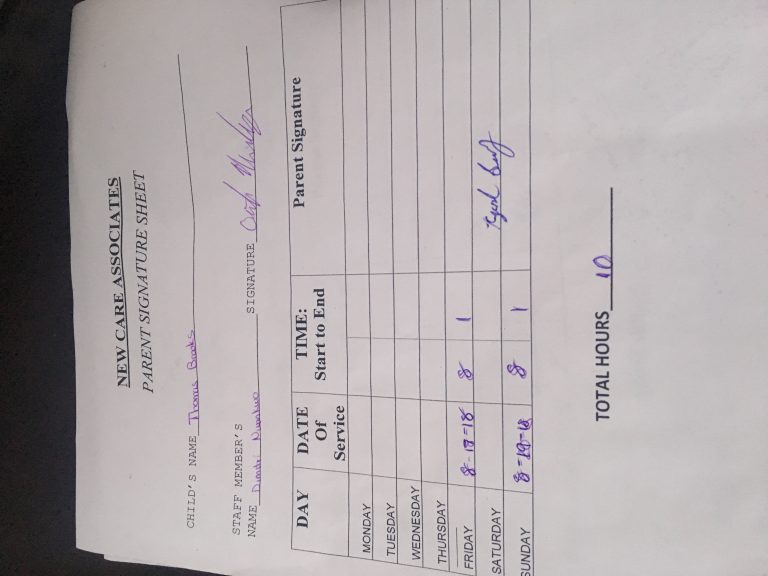 NEW CARE ASSOCIATES
PARENT SIGNATURE SHEET
CHILD'S NAME Thomas Brooks
STAFF MEMBER'S
NAME Dimitri SIGNATURE
DAY DATE Of Service TIME: Start to End Parent Signature
MONDAY
TUESDAY
WEDNESDAY
THURSDAY
FRIDAY 8-17-18 8 1
SATURDAY
SUNDAY 8-19-18 8 1
TOTAL HOURS 10